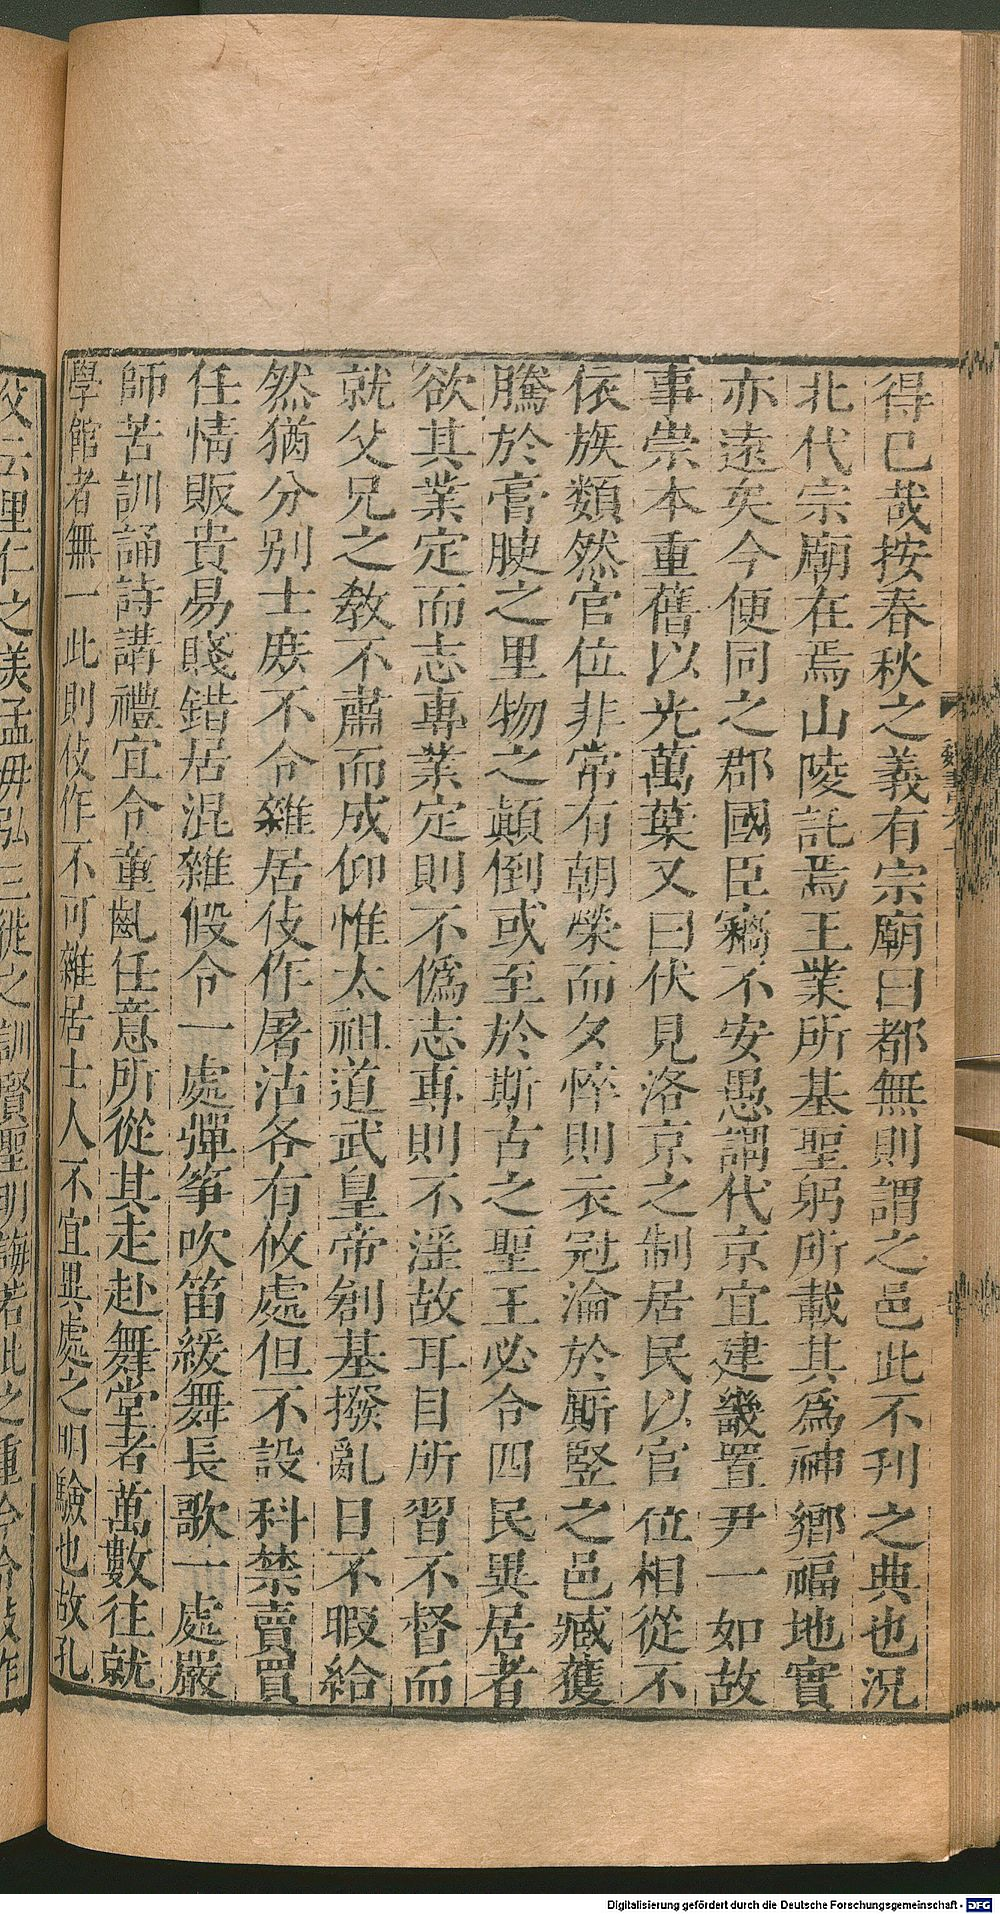 得已哉按春秋之義有宗廟曰都無則謂之邑此不刊之典也況
北代宗廟在焉山陵託焉王業所基聖躬所載其爲神鄉福地實
亦遠矣今便同之郡國臣竊不安愚謂代京宜建畿置尹一如故
事崇本重舊以光萬葉又曰伏見洛京之制居民以官位相從不
依族類然官位非常有朝榮而夕悴則衣冠淪於厮豎之邑臧獲
騰於膏腴之里物之顛倒或至於斯古之聖王必令四民異居者
欲其業定而志專業定則不僞志專則不淫故耳目所習不督而
就父兄之教不肅而成仰惟太祖道武皇帝創基撥亂日不暇給
然猶分別士庶不令雜居伎作屠沽各有攸處但不設科禁賣買
任情販貴易賤錯居混雜假令一處彈筝吹笛緩舞長歌一處嚴
師苦訓誦詩講禮宜令童齓任意所從其走赴舞堂者萬數往就
學館者無一此則伎作不可雜居士人不宜異處之明驗也故孔
父云里仁之美孟母弘三徙之訓賢聖明誨若此之重今令伎作
魏書
Digitalisierung gefördert durch die Deutsche Forschungsgemeinschaft - DFG